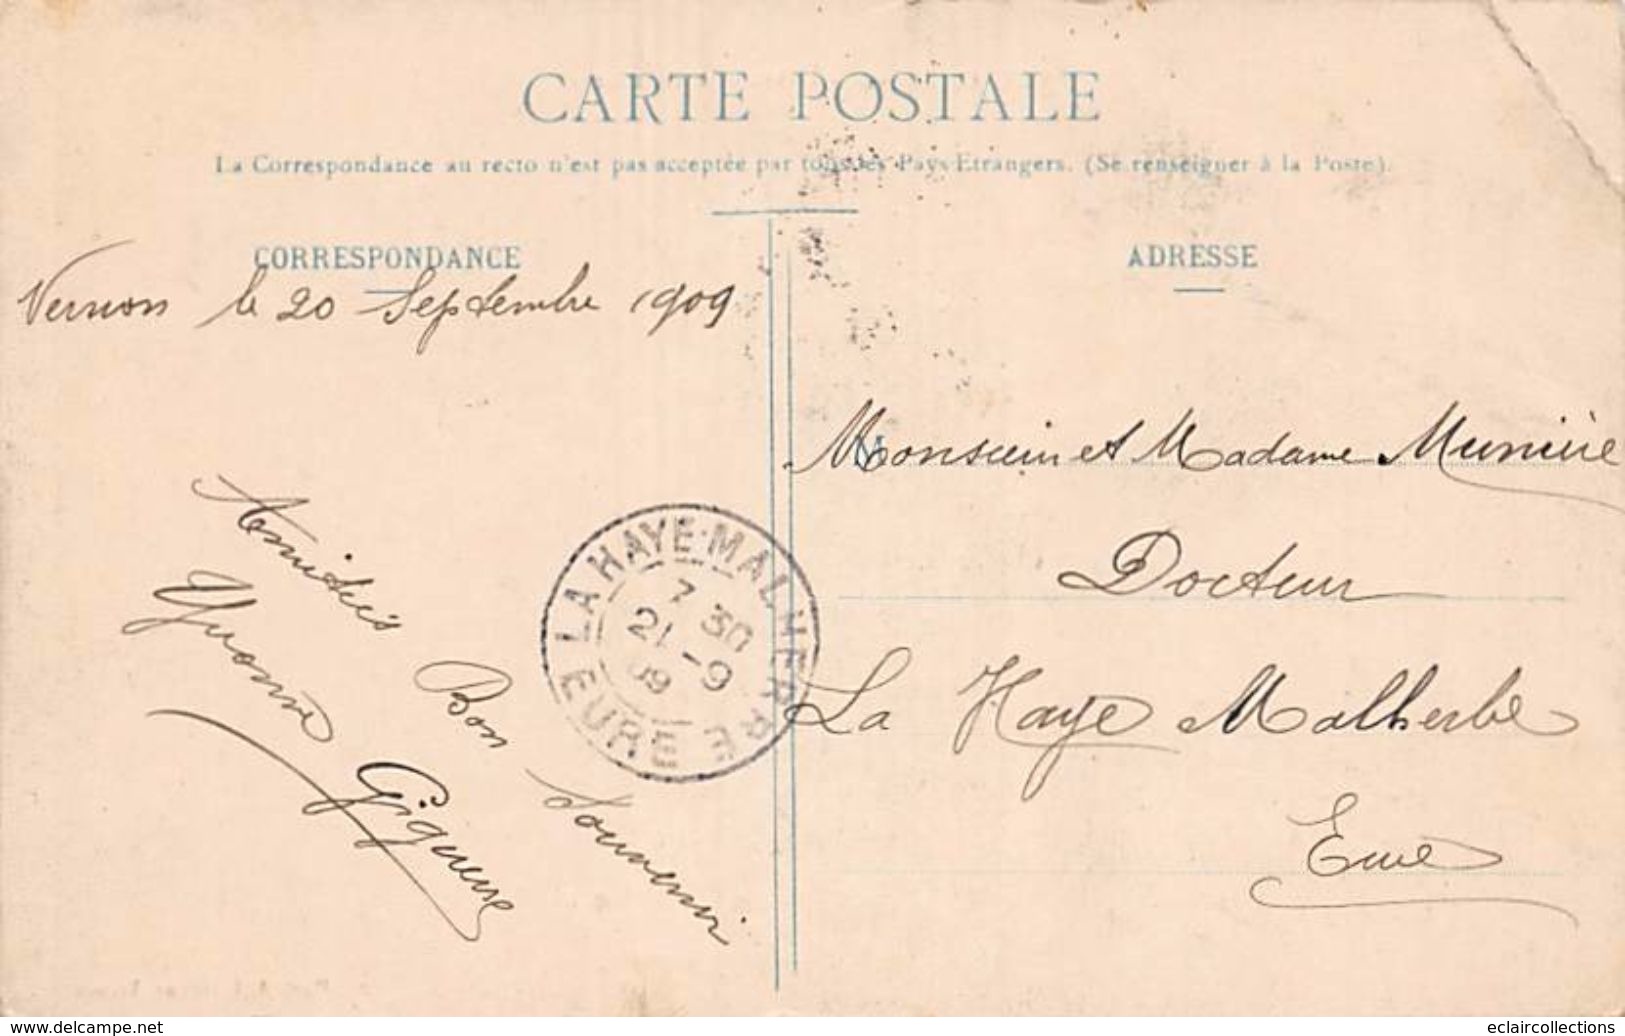 CARTE POSTALE
La Correspondance au recto n'est pas acceptée par tous les Pays Etrangers. (Se renseigner à la Poste).
CORRESPONDANCE
Vernon le 20 Septembre 1909
Amitiés Bon Souvenir
Yvonne
ADRESSE
M
Monsieur et Madame
Docteur
La Haye Malherbe
Eure
LA HAYE-MALHERBE
7 30
21 -9
09
EURE
www.delcampe.net
eclaircollections